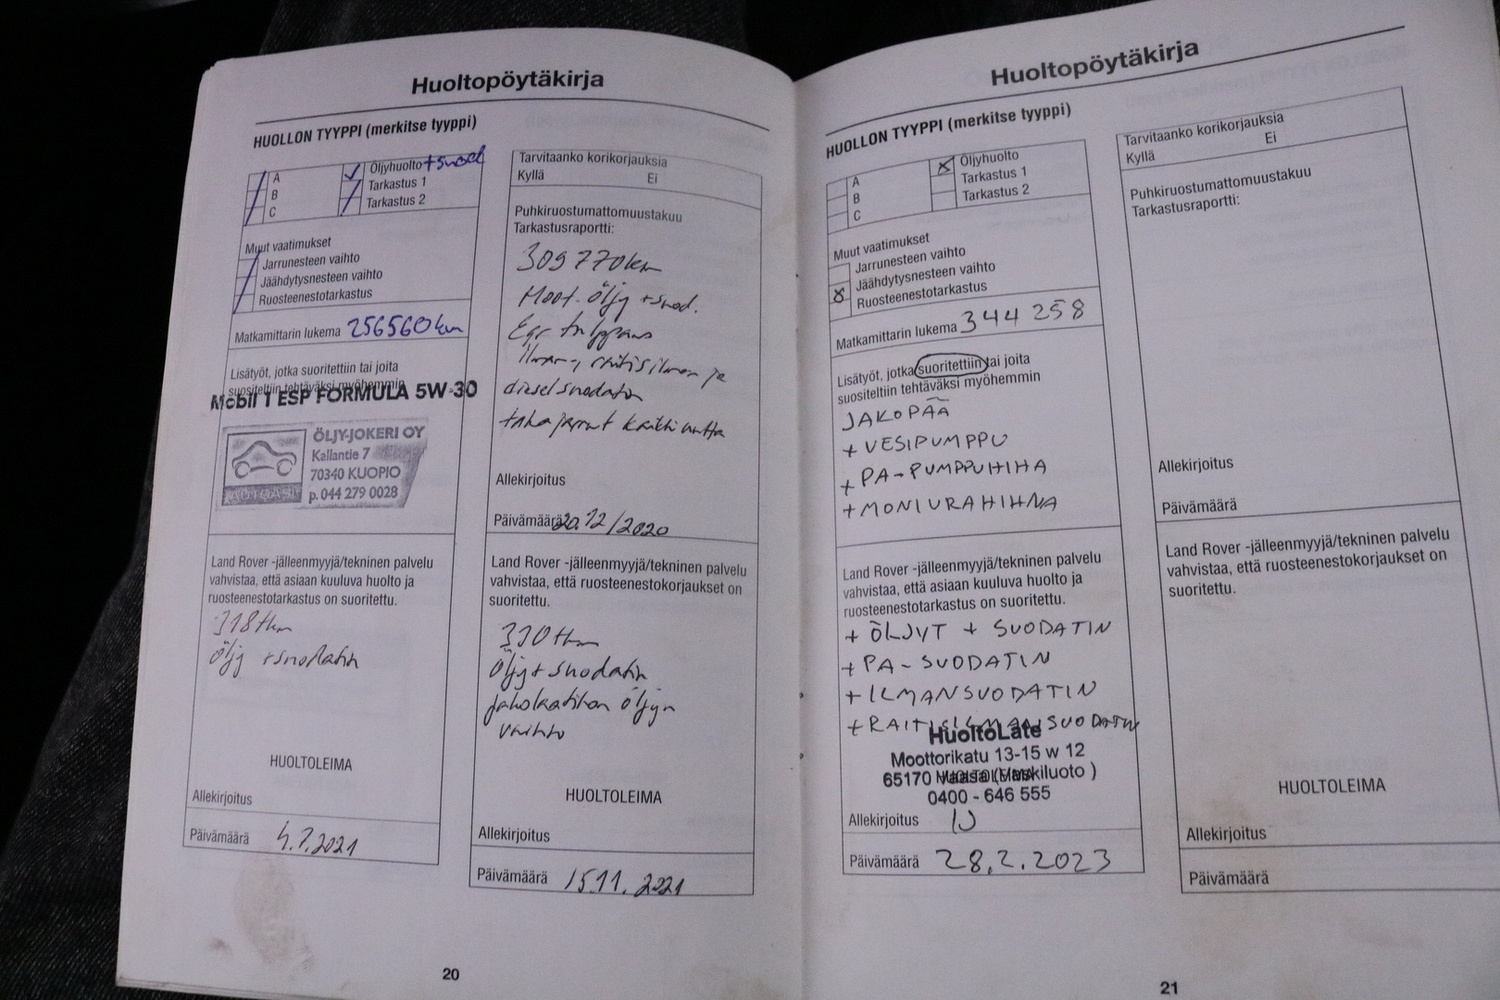 Huoltopöytäkirja
HUOLLON TYYPPI (merkitse tyyppi)
A
B
C
Öljyhuolto + suod
Tarkastus 1
Tarkastus 2
Muut vaatimukset
Jarrunesteen vaihto
Jäähdytysnesteen vaihto
Ruosteenestotarkastus
Matkamittarin lukema 256560 km
Lisätyöt, jotka suoritettiin tai joita
suositeltiin tehtäväksi myöhemmin
Mobil 1 ESP FORMULA 5W-30
ÖLJY-JOKERI OY
Kallantie 7
70340 KUOPIO
AUTOASI
p. 044 279 0028
Land Rover -jälleenmyyjä/tekninen palvelu
vahvistaa, että asiaan kuuluva huolto ja
ruosteenestotarkastus on suoritettu.
318 tkm
öljy + suodatin
HUOLTOLEIMA
Allekirjoitus
Päivämäärä 4.7.2021
Tarvitaanko korikorjauksia
Kyllä Ei
Puhkiruostumattomuustakuu
Tarkastusraportti:
309 770 km
Moot. öljy + suod.
Egr tulppaus
ilman-, raitisilman ja
dieselsuodatin
takajarrut kaikki uutta
Allekirjoitus
Päivämäärä 20.12/2020
Land Rover -jälleenmyyjä/tekninen palvelu
vahvistaa, että ruosteenestokorjaukset on
suoritettu.
330 tkm
Öljy + suodatin
jakolaatikon öljyn
vaihto
HUOLTOLEIMA
Allekirjoitus
Päivämäärä 15.11.2021
20
Huoltopöytäkirja
HUOLLON TYYPPI (merkitse tyyppi)
A
B
C
Öljyhuolto
Tarkastus 1
Tarkastus 2
Muut vaatimukset
Jarrunesteen vaihto
Jäähdytysnesteen vaihto
Ruosteenestotarkastus
Matkamittarin lukema 344 258
Lisätyöt, jotka suoritettiin tai joita
suositeltiin tehtäväksi myöhemmin
JAKOPÄÄ
+ VESIPUMPPU
+ PA-PUMPPUHIHA
+ MONIURAHIHNA
Land Rover -jälleenmyyjä/tekninen palvelu
vahvistaa, että asiaan kuuluva huolto ja
ruosteenestotarkastus on suoritettu.
+ ÖLJYT + SUODATIN
+ PA-SUODATIN
+ ILMANSUODATIN
+ RAITISILMANSUODATIN
HuoltoLate
Moottorikatu 13-15 w 12
65170 Vaasa (Vaskiluoto)
HUOLTOLEIMA
0400 - 646 555
Allekirjoitus
Päivämäärä 28.2.2023
Tarvitaanko korikorjauksia
Kyllä Ei
Puhkiruostumattomuustakuu
Tarkastusraportti:
Allekirjoitus
Päivämäärä
Land Rover -jälleenmyyjä/tekninen palvelu
vahvistaa, että ruosteenestokorjaukset on
suoritettu.
HUOLTOLEIMA
Allekirjoitus
Päivämäärä
21